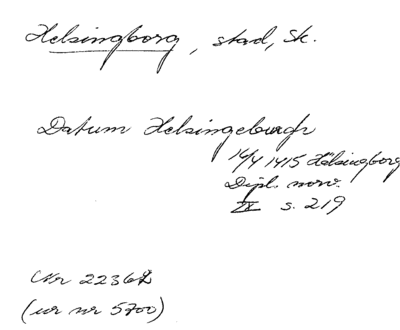 Helsingborg, stad, Sk.
Datum Helsingeburgh
14/4 1415 Hälsingborg
Dipl. norv.
IX s. 219
Nr 22362
(ur nr 5700)